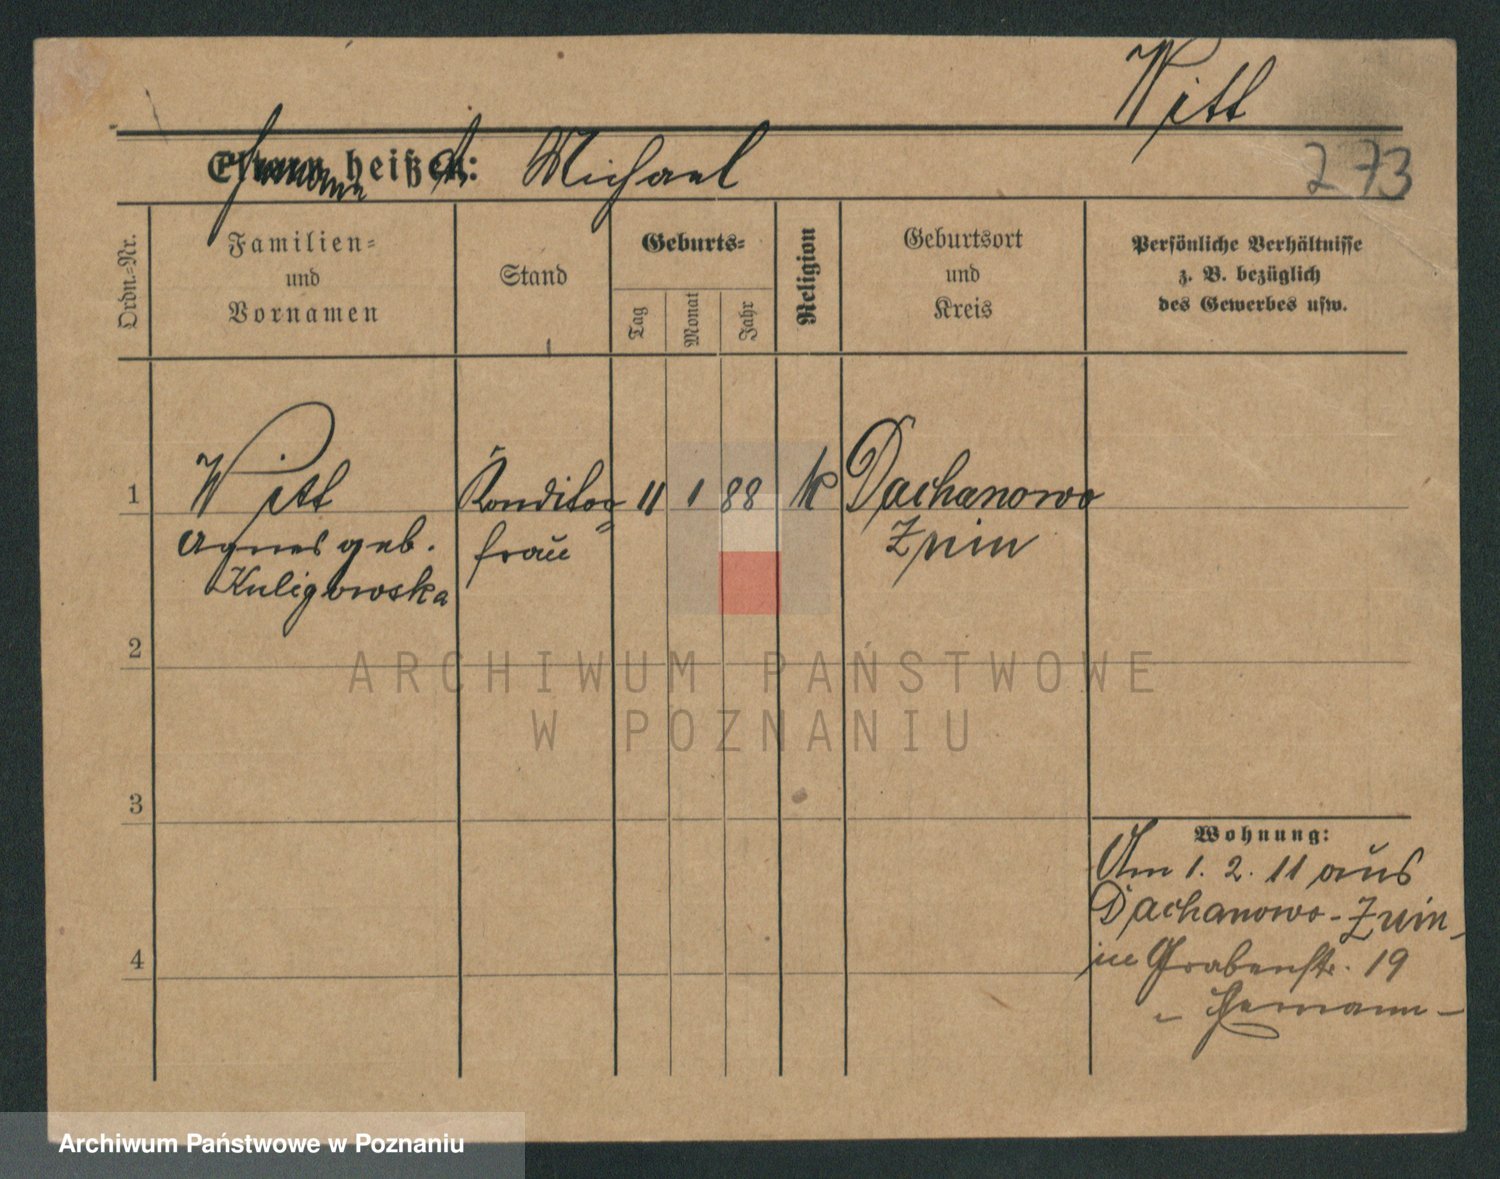 Witt
Ehemann heißt: Michael
273
Ordn.-Nr.
Familien-
und
Vornamen
Stand
Geburts-
Tag
Monat
Jahr
Religion
Geburtsort
und
Kreis
Persönliche Verhältnisse
z. B. bezüglich
des Gewerbes usw.
1
Witt
Agnes geb.
Kuligowska
Konditor=
frau
11 1 88
k
Dachanowo
Znin
2
3
4
Wohnung:
Am 1. 2. 11 aus
Dachanowo-Znin-
in Grabenstr. 19
- Ehemann -
ARCHIWUM PAŃSTWOWE
W POZNANIU
Archiwum Państwowe w Poznaniu